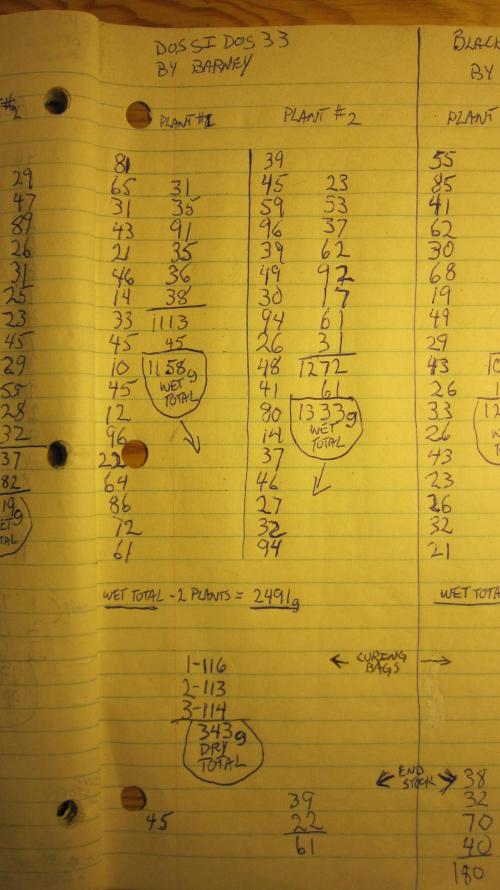 #2
29
47
89
26
31
25
23
45
29
55
28
32
37
82
19g
ET
TAL
DOSSIDOS 33
BY BARNEY
PLANT #1
81
65
31
43
21
46
14
33
45
10
45
12
96
22
64
86
72
61
31
35
91
35
36
38
1113
45
1158g
WET
TOTAL
PLANT #2
39
45
59
96
39
49
30
94
26
48
41
80
14
37
46
27
32
94
23
53
37
62
92
17
61
31
1272
61
1333g
WET
TOTAL
WET TOTAL - 2 PLANTS = 2491g
1-116
2-113
3-114
343g
DRY
TOTAL
45
39
22
61
CURING
BAGS
END
STOCK
BLACK
BY
PLANT
55
85
41
62
30
68
19
49
29
43
26
33
26
43
23
26
32
21
WET TOTA
38
32
70
40
180